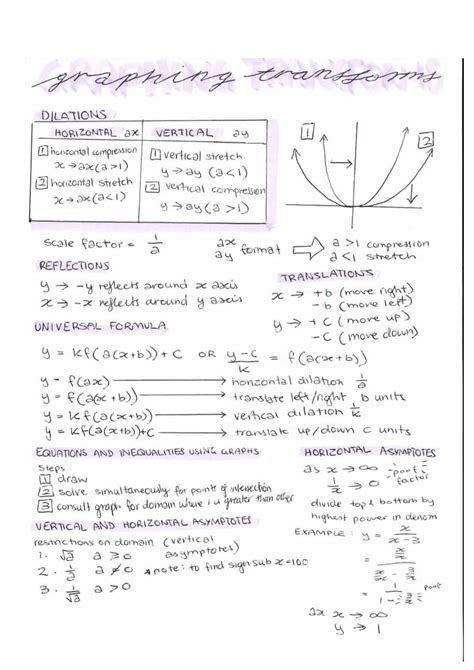 graphing transforms
DILATIONS
HORIZONTAL ax
VERTICAL ay
1 horizontal compression
x → ax (a>1)
2 horizontal stretch
x → ax (a<1)
1 vertical stretch
y → ay (a<1)
2 vertical compression
y → ay (a>1)
1
2
scale factor = 1/a
ax
ay
format
a>1 compression
a<1 stretch
REFLECTIONS
y → -y reflects around x axis
x → -x reflects around y axis
TRANSLATIONS
x → +b (move right)
- b (move left)
y → + C (move up)
- C (move down)
UNIVERSAL FORMULA
y = kf(a(x+b)) + C OR y-C/k = f(a(x+b))
y = f(ax) → horizontal dilation 1/a
y = f(a(x+b)) → translate left/right b units
y = kf(a(x+b)) → vertical dilation 1/k
y = kf(a(x+b))+C → translate up/down c units
EQUATIONS AND INEQUALITIES USING GRAPHS
Steps
1 draw
2 solve simultaneously for points of intersection
3 consult graph for domain where 1 is greater than other
VERTICAL AND HORIZONTAL ASYMPTOTES
restrictions on domain (vertical
asymptotes)
1. √a a ≥ 0
2. 1/a a ≠ 0 * note: to find sign sub x=100
3. 1/√a a > 0
HORIZONTAL ASYMPTOTES
as x → ∞
1/x → 0
factor
divide top & bottom by
highest power in denom
EXAMPLE: y = x/x-3
= x/x / x/x - 3/x
= 1 / 1 - 3/x
x → ∞
y → 1